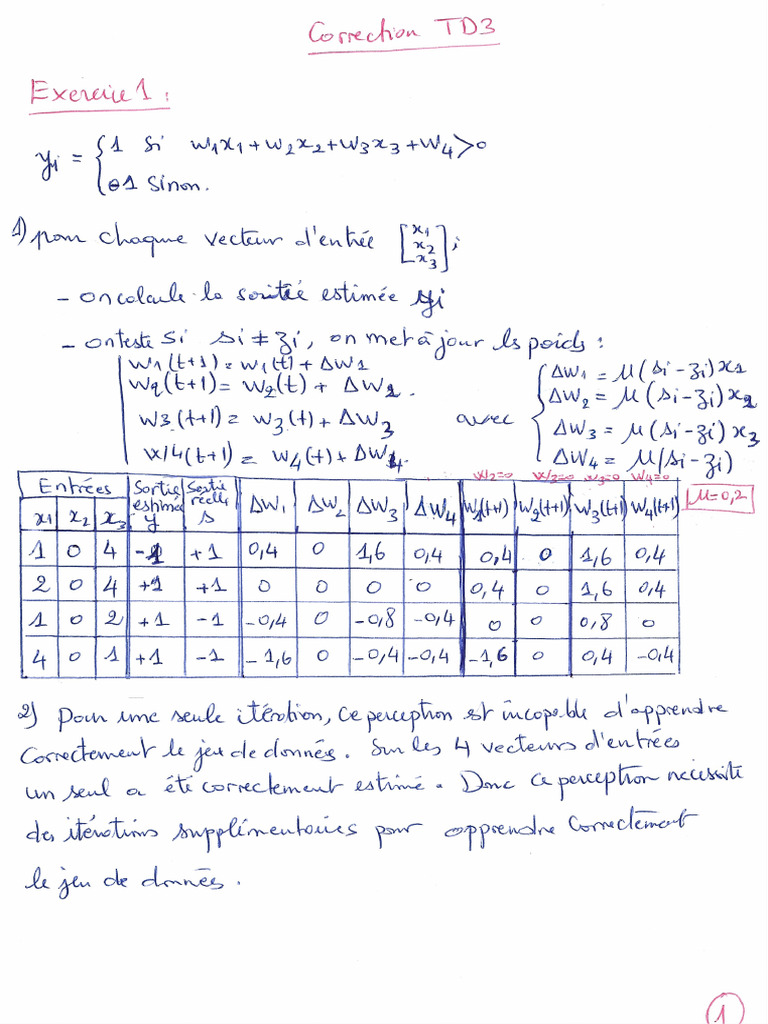 Correction TD3
Exercice 1 :
yi = { 1 si w1x1+w2x2+w3x3+w4>0
⊖1 sinon.
1) pour chaque vecteur d'entrée [x1 x2 x3];
- on calcule la sortie estimée yi
- on teste si si ≠ zi, on met à jour ls poids :
w1(t+1) = w1(t) + Δw1
w2(t+1) = w2(t) + Δw2.
w3(t+1) = w3(t) + Δw3
w4(t+1) = w4(t) + Δw4.
avec
Δw1 = μ(si-zi)x1
Δw2 = μ(si-zi)x2
Δw3 = μ(si-zi)x3
Δw4 = μ(si-zi)
w2=0 w3=0 w4=0
μ=0,2
Entrées Sortie estimée y Sortie réelle s ΔW1 ΔW2 ΔW3 ΔW4 W1(t+1) W2(t+1) W3(t+1) W4(t+1)
x1 x2 x3
1 0 4 -1 +1 0,4 0 1,6 0,4 0,4 0 1,6 0,4
2 0 4 +1 +1 0 0 0 0 0,4 0 1,6 0,4
1 0 2 +1 -1 -0,4 0 -0,8 -0,4 0 0 0,8 0
4 0 1 +1 -1 -1,6 0 -0,4 -0,4 -1,6 0 0,4 -0,4
2) Pour une seule itération, ce perception est incapable d'apprendre
correctement le jeu de données. Sur les 4 vecteurs d'entrées
un seul a été correctement estimé. Donc ce perception nécessite
des itérations supplémentaires pour apprendre correctement
le jeu de données.
1